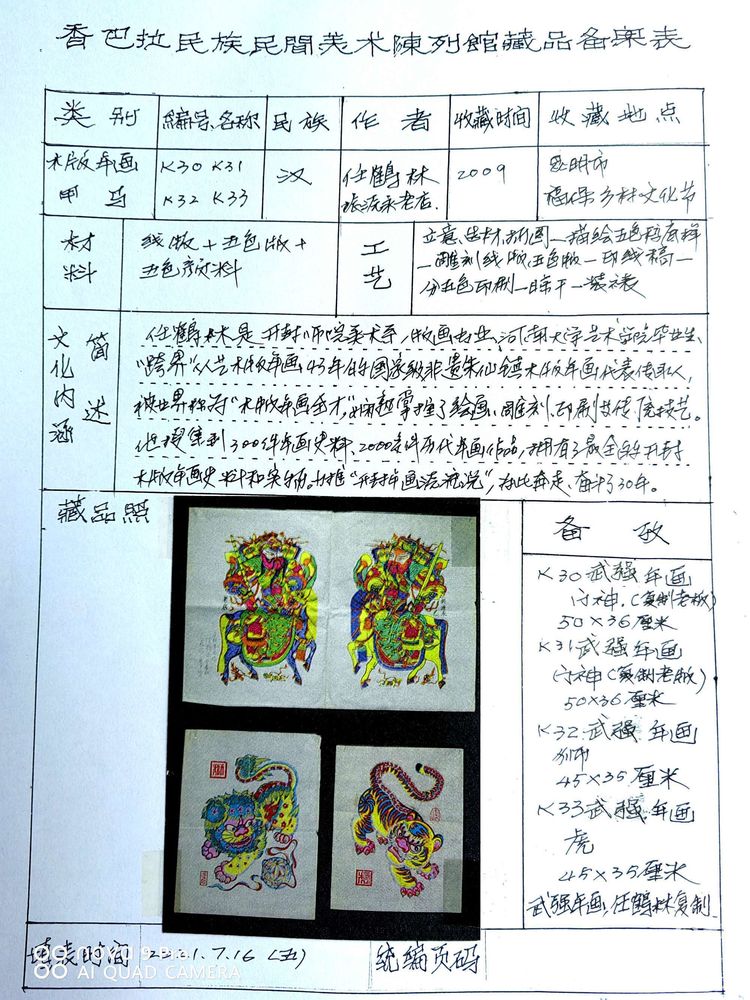 香巴拉民族民間美术陳列館藏品备案表
类别 編号、名称 民族 作者 收藏时间 收藏地点
木版年画 K30 K31 汉 任鶴林 2009 昆明市
甲马 K32 K33 振源永老店. 福保乡村文化节
材料 线版+五色版+ 工艺
五色颜料
一雕刻线版、五色版一印线稿一
分五色印刷一晾干一装裱
文化内涵 简述
任鶴林是开封师院美术系,版画专业,河南大学艺术学院毕业生、
"跨界"从艺木版年画43年的国家级非遗朱仙镇木版年画代表传承人,
被世界称为"木版年画全才",娴熟掌握了绘画、雕刻、印刷等传统技艺。
他搜集到300件年画史料、2000多件历代年画作品,拥有了最全的开封
木版年画史料和实物。力推"开封年画流派说",为此奔走、奋斗了30年。
藏品照 备攷
K30 武强年画
门神.(复制老版)
50×36厘米
K31 武强年画
门神(复制老版)
50×36厘米
K32 武强年画
狮
45×35厘米
K33 武强年画
虎
45×35厘米
武强年画,任鶴林复制
填表时间 7.16 (五) 统編页码
AI QUAD CAMERA